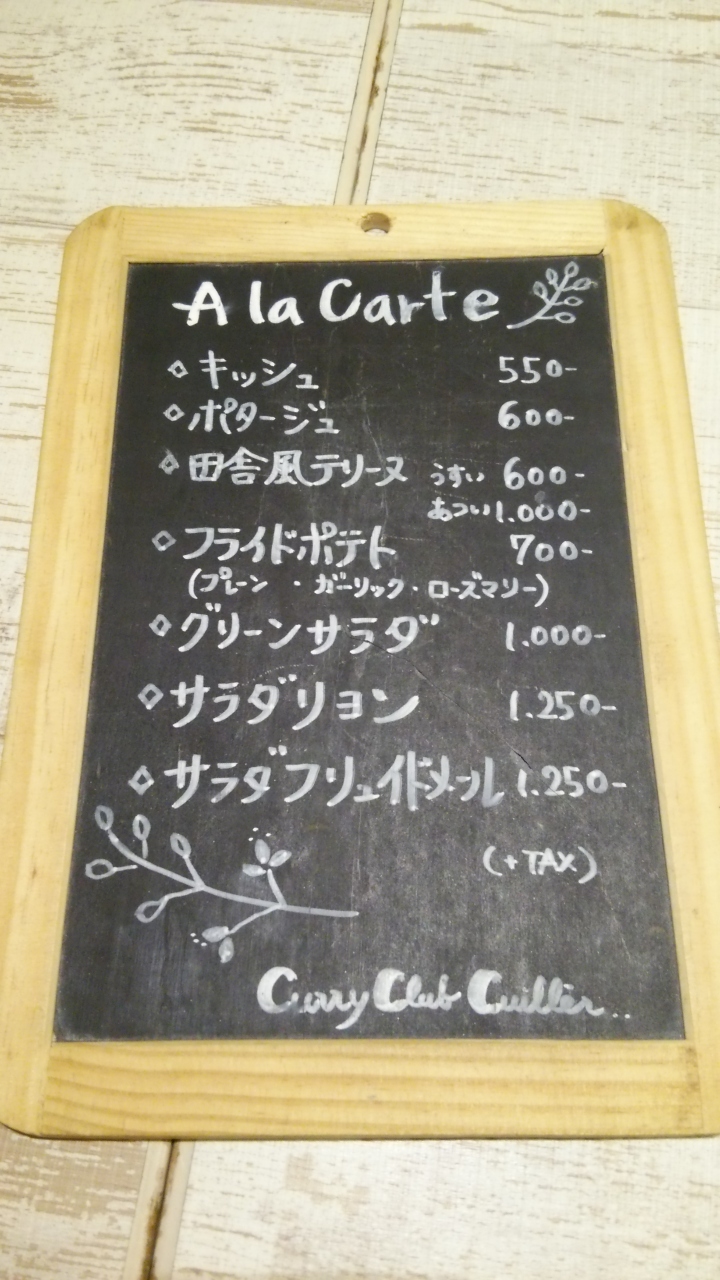 A la Carte
◇ キッシュ 550-
◇ ポタージュ 600-
◇ 田舎風テリーヌ うすい 600-
あつい 1.000-
◇ フライドポテト 700-
(プレーン ・ ガーリック・ローズマリー)
◇ グリーンサラダ 1.000-
◇ サラダリヨン 1.250-
◇ サラダフリュイドメール 1.250-
(+TAX)
Curry Club Cuillère..